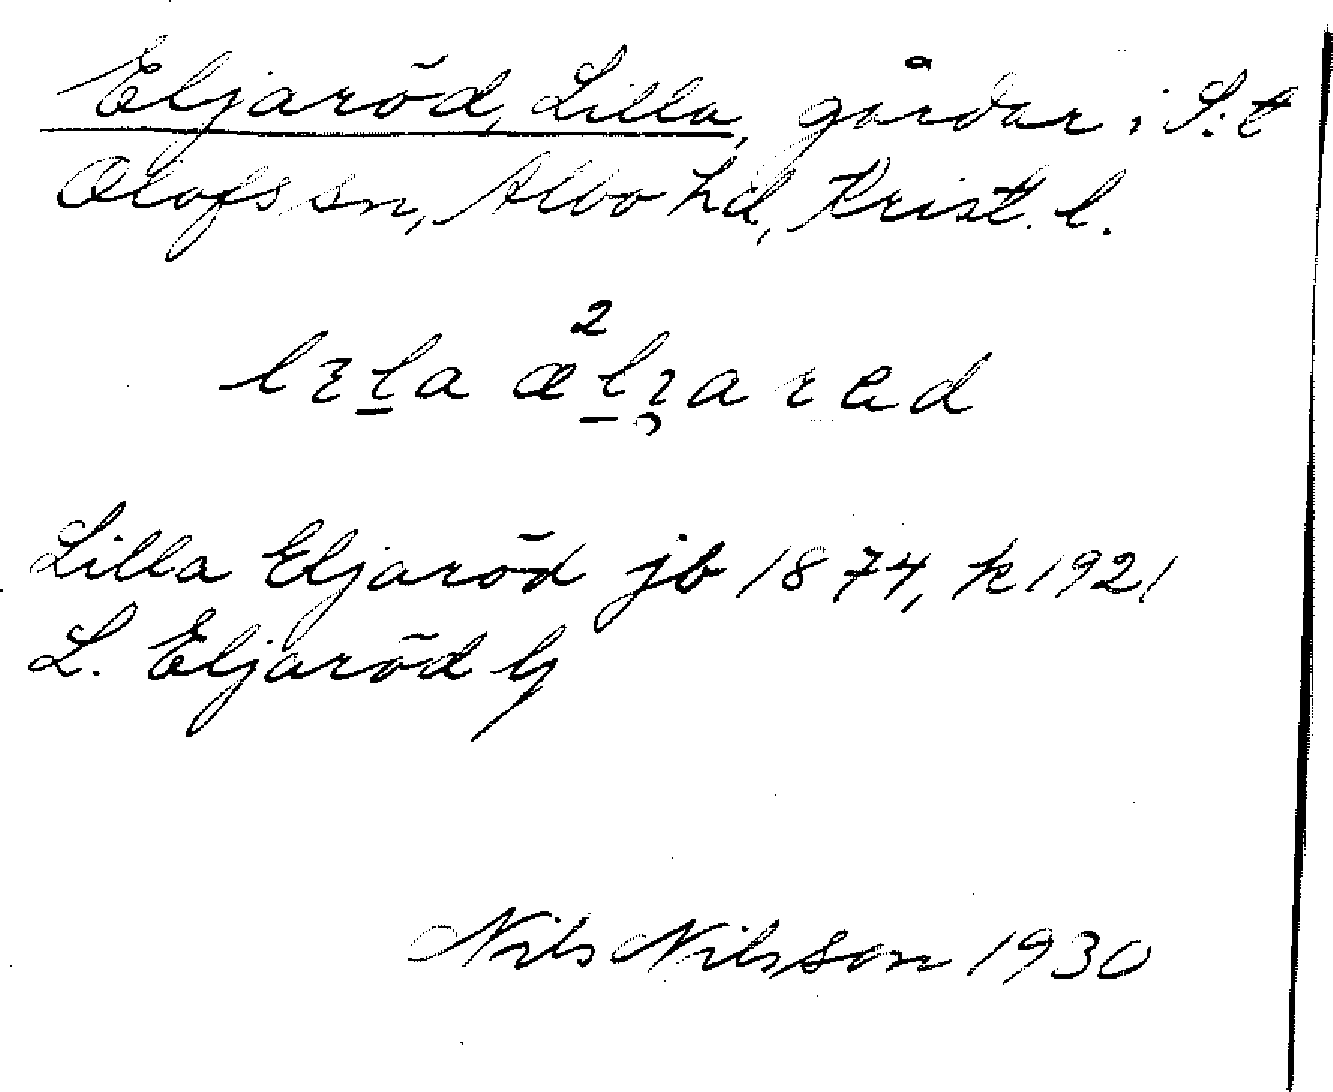 Eljaröd, Lilla, gårdar i S:t
Olofs sn, Albo hd, Krist. l.
Lilla Eljaröd jb 1874, k 1921
L. Eljaröd
Nils Nilsson 1930